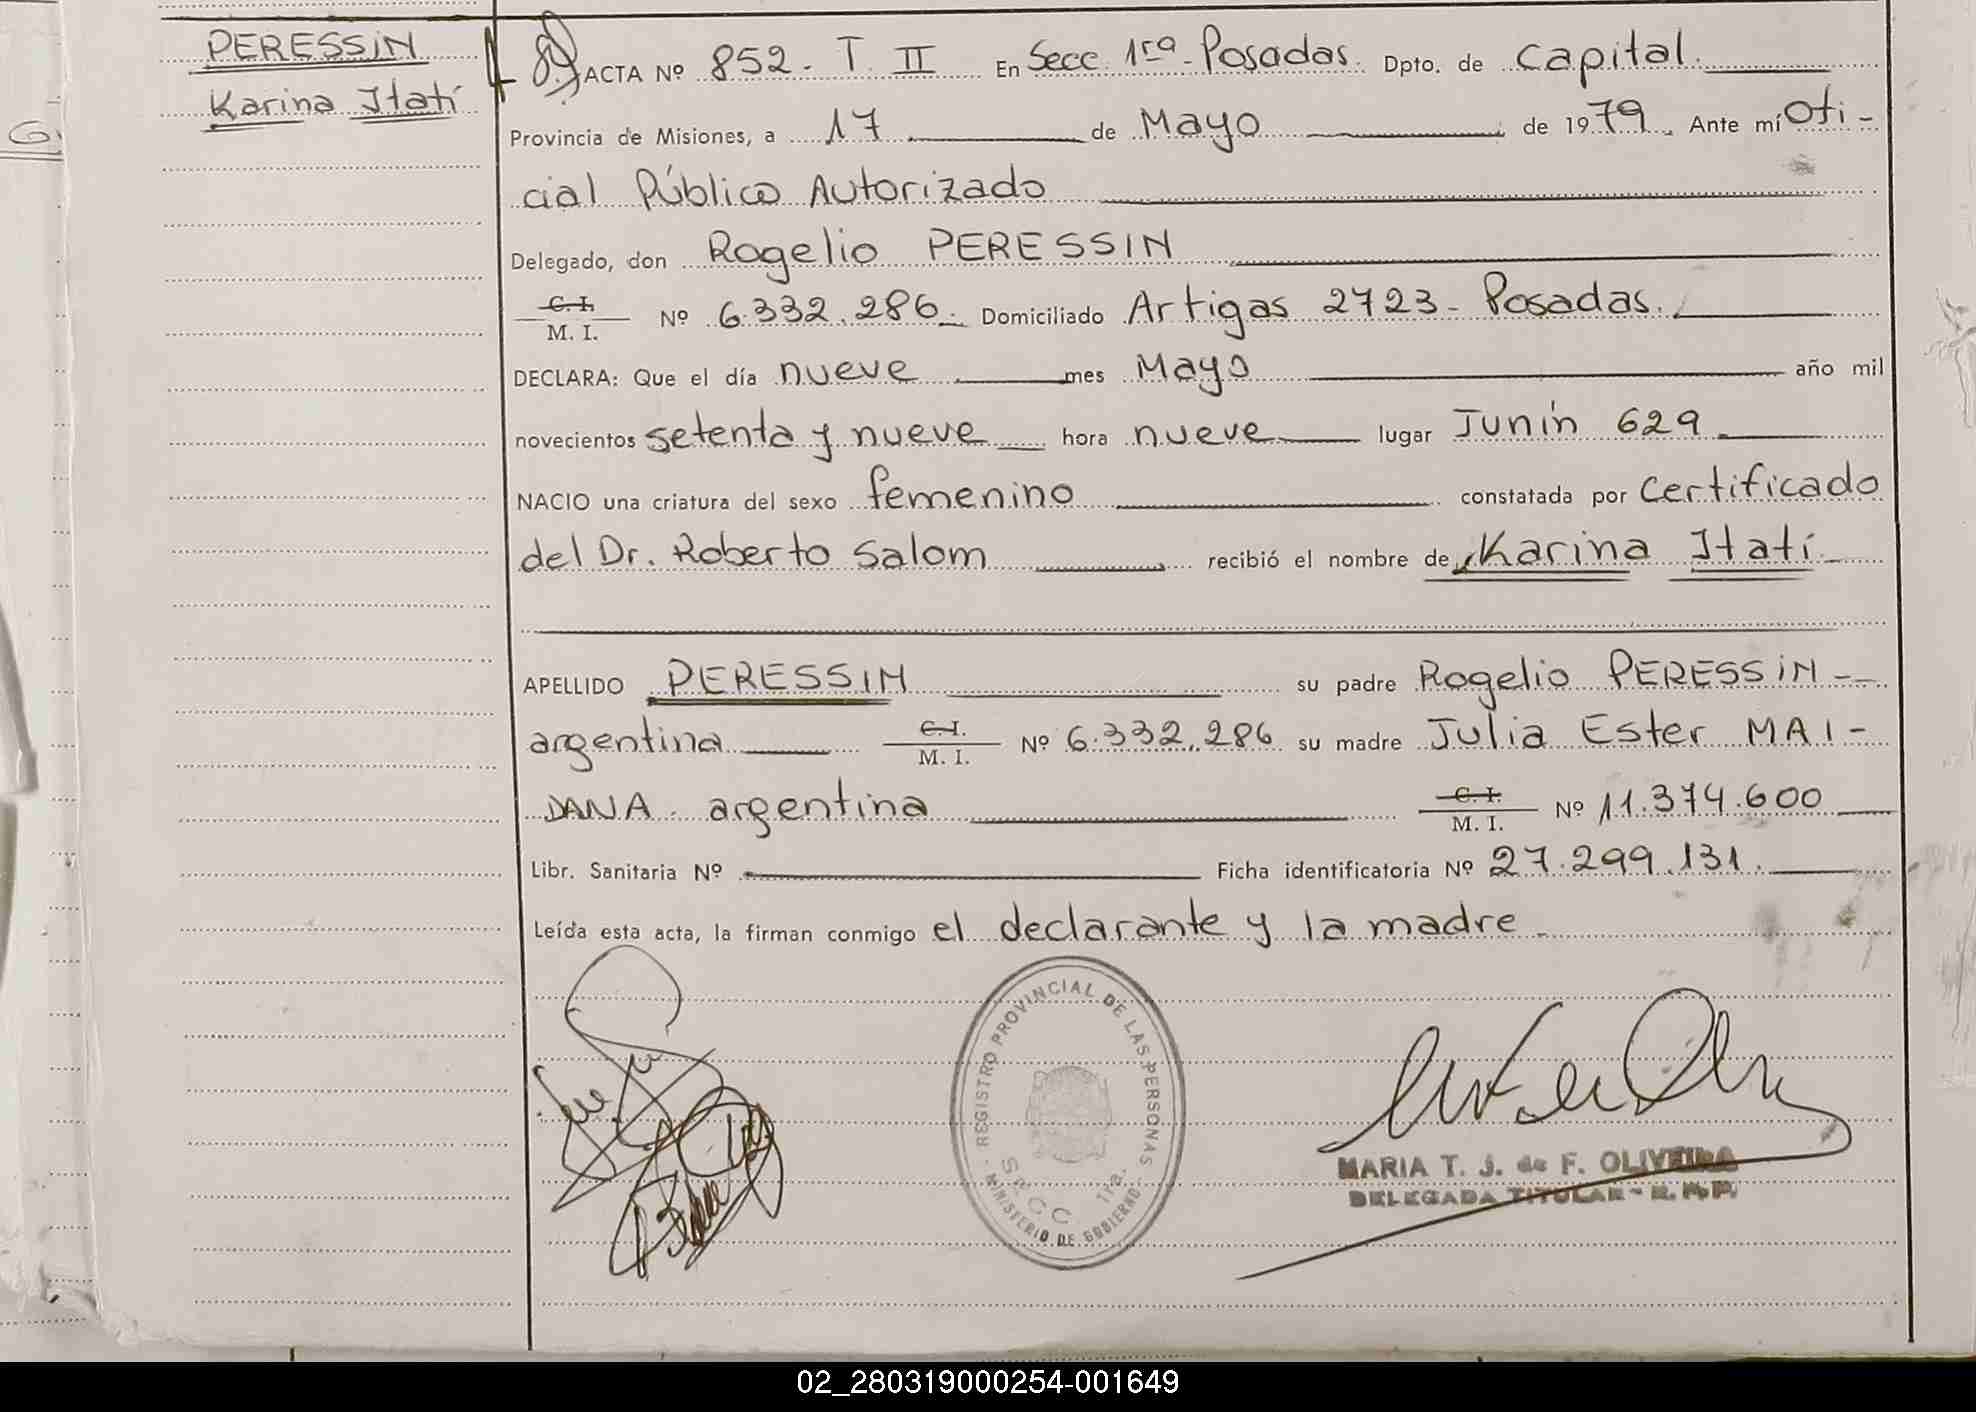 PERESSIN
Karina Itatí
ACTA Nº 852. T. II En Secc. 1ra. Posadas. Dpto. de Capital.
Provincia de Misiones, a 17 de Mayo de 1979. Ante mí Ofi-
cial Público Autorizado
Delegado, don Rogelio PERESSIN
C. I.
M. I. Nº 6.332.286. Domiciliado Artigas 2723 - Posadas.
DECLARA: Que el día nueve mes Mayo año mil
novecientos setenta y nueve hora nueve lugar Junín 629
NACIO una criatura del sexo femenino constatada por certificado
del Dr. Roberto Salom recibió el nombre de Karina Itatí
APELLIDO PERESSIN su padre Rogelio PERESSIN -
argentina C. I.
M. I. Nº 6.332.286 su madre Julia Ester MAI-
DANA. argentina C. I.
M. I. Nº 11.374.600
Libr. Sanitaria Nº Ficha identificatoria Nº 27.299.131.
Leída esta acta, la firman conmigo el declarante y la madre.
REGISTRO PROVINCIAL DE LAS PERSONAS
SECC 1ra.
MINISTERIO DE GOBIERNO
MARIA T. J. de F. OLIVEIRA
DELEGADA TITULAR - R. P. P.
02_280319000254-001649